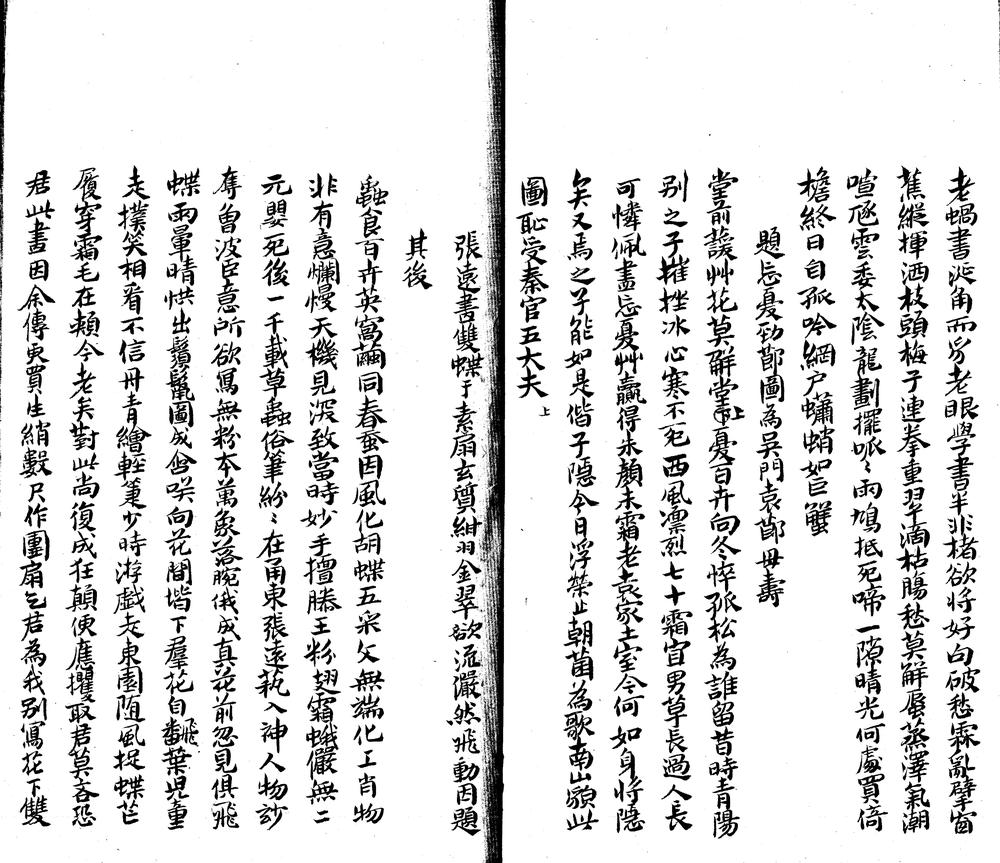 老蝸書涎角而男老眼學書半非楮欲將好句破愁霖亂擘窗
蕉縱揮洒枝頭梅子連拳重翠滴枯腸愁莫解蜃蒸澤氣潮
喧豗雲委太陰龍劃擺哌〻雨鳩抵死啼一隙晴光何處買倚
檐終日自孤吟網戶蠨蛸如巨蟹
題忘憂勁節圖為吳門袁節母壽
堂前諼艸花莫解堂上憂百卉向冬悴孤松為誰留昔時青陽
別之子摧挫冰心寒不死西風凛烈七十霜宜男草長過人長
可憐佩盡忘憂艸贏得朱顏未霜老袁家土室今何如身將隱
矣又焉之子能如是偕子隱今日浮榮止朝菌為歌南山願此
圖恥受秦官五大夫上
張遠書雙蝶于素扇玄質紺羽金翠欲流儼然飛動因題
其後
蟲食百卉英窩繭同春蚕因風化胡蝶五采文無端化工肖物
非有意爛慢天機見深致當時妙手擅滕王粉翅霜蛾儼無二
元嬰死後一千載草蟲俗筆紛〻在甬東張遠執入神人物訬
奪曾波臣意所欲寫無粉本萬象落腕俄成真花前忽見俱飛
蝶雨暈晴烘出鬚鬣圖成含咲向花間堦下羣花自飛葉兒童
走撲笑相看不信丹青繪輕箑少時游戲走東園随風捉蝶芒
履穿霜毛在頰今老矣對此尚復成狂顛便應攫取君莫吝恐
君此畫因余傳更買生綃數尺作團扇乞君為我別寫花下雙